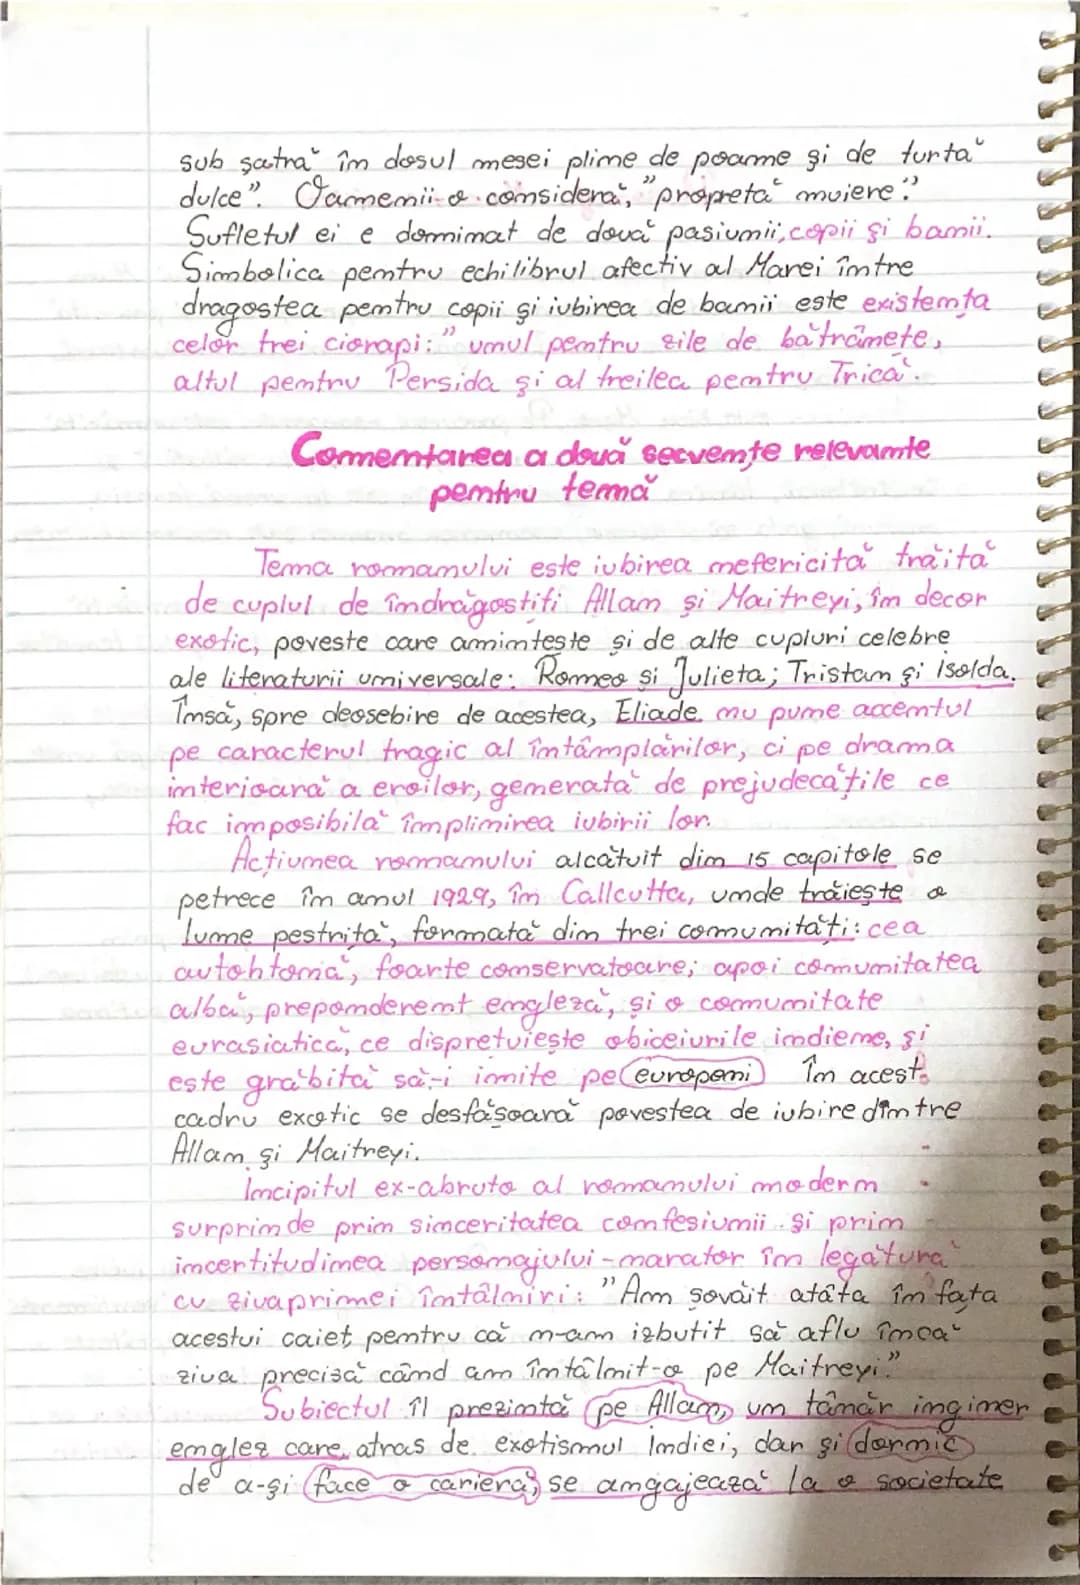 sub șatră în dosul mesei pline de poame și de turtă
dulce". Oamenii o consideră, "propretă muiere".
Sufletul ei e dominat de două pasiuni, copii și banii.
Simbolica pentru echilibrul afectiv al Marei între
dragostea pentru copii și iubirea de banii este existența
celor trei ciorapi: "unul pentru zile de bătrânețe,
altul pentru Persida și al treilea pentru Trică.
Comentarea a două secvențe relevante
pentru temă
Tema romanului este iubirea nefericită trăită
de cuplul de îndrăgostiți Allan și Maitreyi, în decor
exotic, poveste care amintește și de alte cupluri celebre
ale literaturii universale: Romeo și Julieta; Tristan și Isolda.
Însă, spre deosebire de acestea, Eliade nu pune accentul
pe caracterul tragic al întâmplărilor, ci pe drama
interioară a eroilor, generată de prejudecățile ce
fac imposibilă împlinirea iubirii lor.
Acțiunea romanului alcătuit din 15 capitole se
petrece în anul 1929, în Callcutta, unde trăiește o
lume pestriță, formată din trei comunități: cea
autohtonă, foarte conservatoare; apoi comunitatea
albă, preponderent engleză, și o comunitate
eurasiatică, ce disprețuiește obiceiurile indiene, și
este grăbită să-i imite pe europeni În acest
cadru exotic se desfășoară povestea de iubire dintre
Allan și Maitreyi.
Incipitul ex-abruto al romanului modern
surprinde prin sinceritatea confesiunii și prin
incertitudinea personajului-narator în legătură
cu ziua primei întâlniri: "Am șovăit atâta în fața
acestui caiet, pentru că n-am izbutit să aflu încă
ziua precisă când am întâlnit-o pe Maitreyi."
Subiectul îl prezintă pe Allan, un tânăr inginer
englez care, atras de exotismul Indiei, dar și dornic
de a-și face o carieră, se angajează la o societate